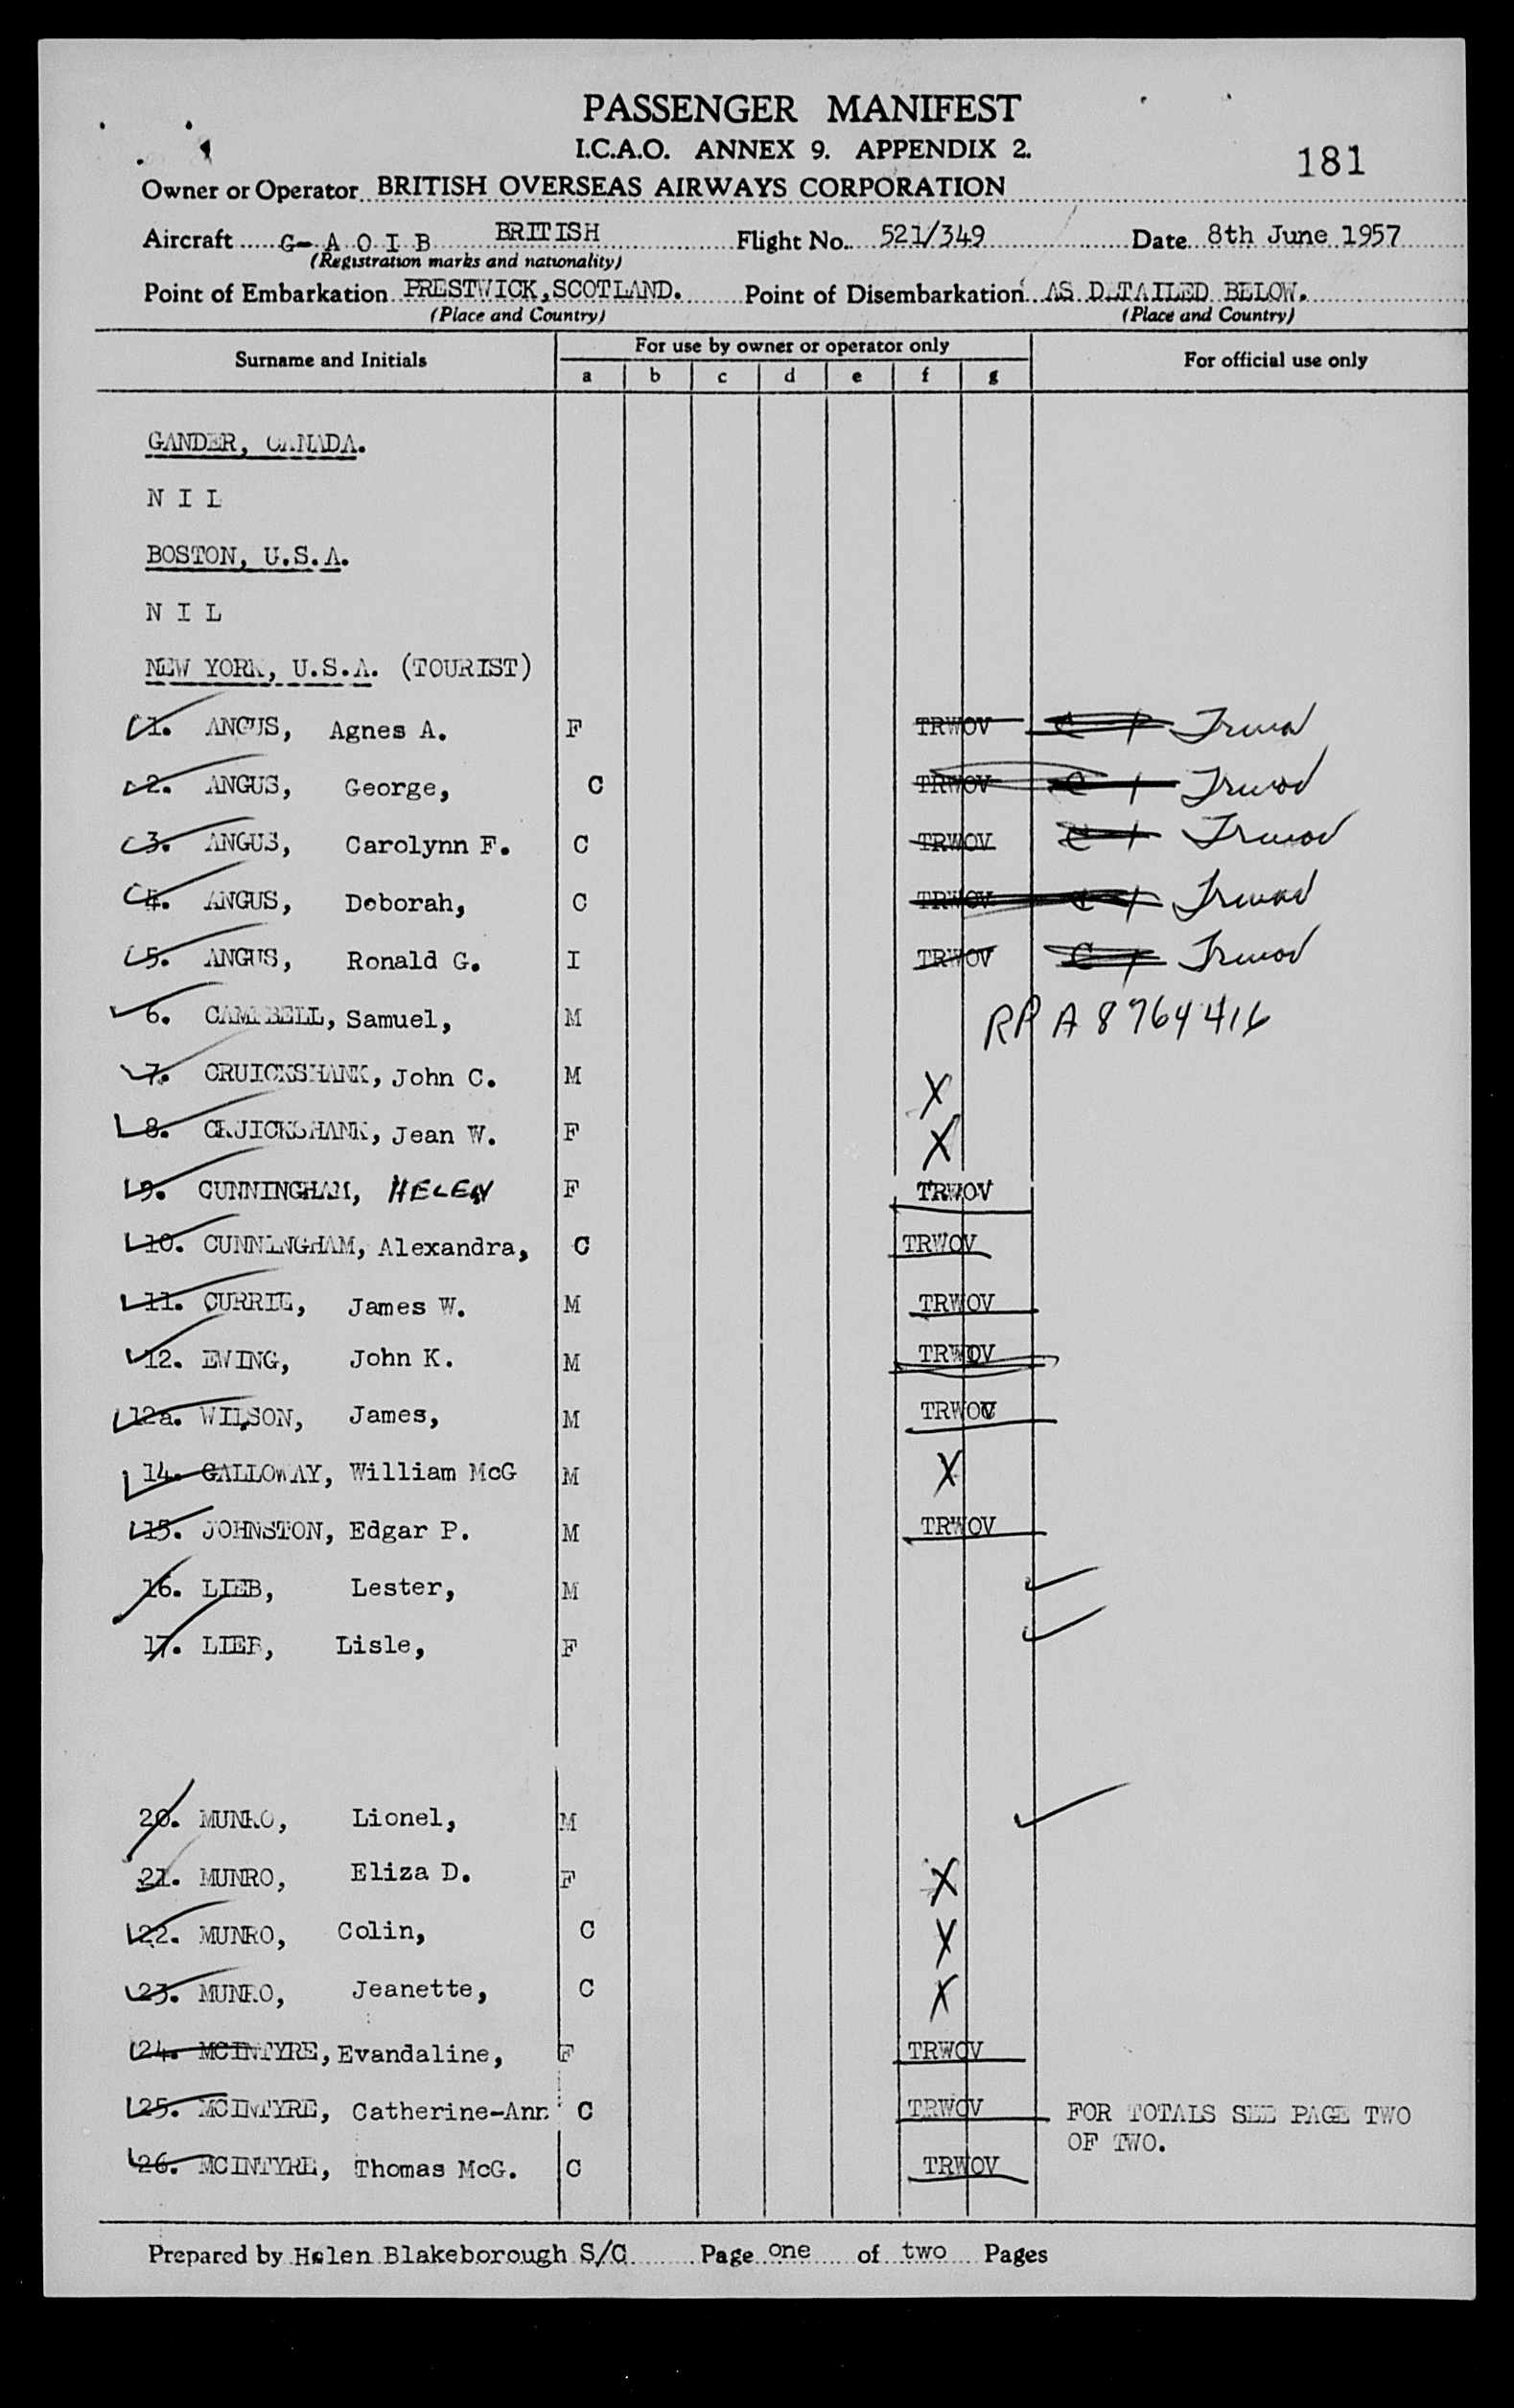 PASSENGER MANIFEST
I.C.A.O. ANNEX 9. APPENDIX 2.
181
Owner or Operator BRITISH OVERSEAS AIRWAYS CORPORATION
Aircraft G- A O I B BRITISH Flight No. 521/349 Date 8th June 1957
(Registration marks and nationality)
Point of Embarkation PRESTWICK, SCOTLAND. Point of Disembarkation AS DETAILED BELOW.
(Place and Country) (Place and Country)
Surname and Initials For use by owner or operator only For official use only
a b c d e f g
GANDER, CANADA.
N I L
BOSTON, U.S.A.
N I L
NEW YORK, U.S.A. (TOURIST)
1. ANGUS, Agnes A. F TRWOV
2. ANGUS, George, C TRWOV
3. ANGUS, Carolynn F. C TRWOV
4. ANGUS, Deborah, C TRWOV
5. ANGUS, Ronald G. I TRWOV
6. CAMPBELL, Samuel, M RP A8764416
7. CRUICKSHANK, John C. M X
8. CRUICKSHANK, Jean W. F X
9. CUNNINGHAM, HELEN F TRWOV
10. CUNNINGHAM, Alexandra, C TRWOV
11. CURRIE, James W. M TRWOV
12. EWING, John K. M TRWOV
12a. WILSON, James, M TRWOV
14. GALLOWAY, William McG M X
15. JOHNSTON, Edgar P. M TRWOV
16. LIEB, Lester, M
17. LIEB, Lisle, F
20. MUNRO, Lionel, M
21. MUNRO, Eliza D. F X
22. MUNRO, Colin, C X
23. MUNRO, Jeanette, C X
24. MCINTYRE, Evandaline, F TRWOV
25. MCINTYRE, Catherine-Ann C TRWOV FOR TOTALS SEE PAGE TWO
OF TWO.
26. MCINTYRE, Thomas McG. C TRWOV
Prepared by Helen Blakeborough S/C Page one of two Pages